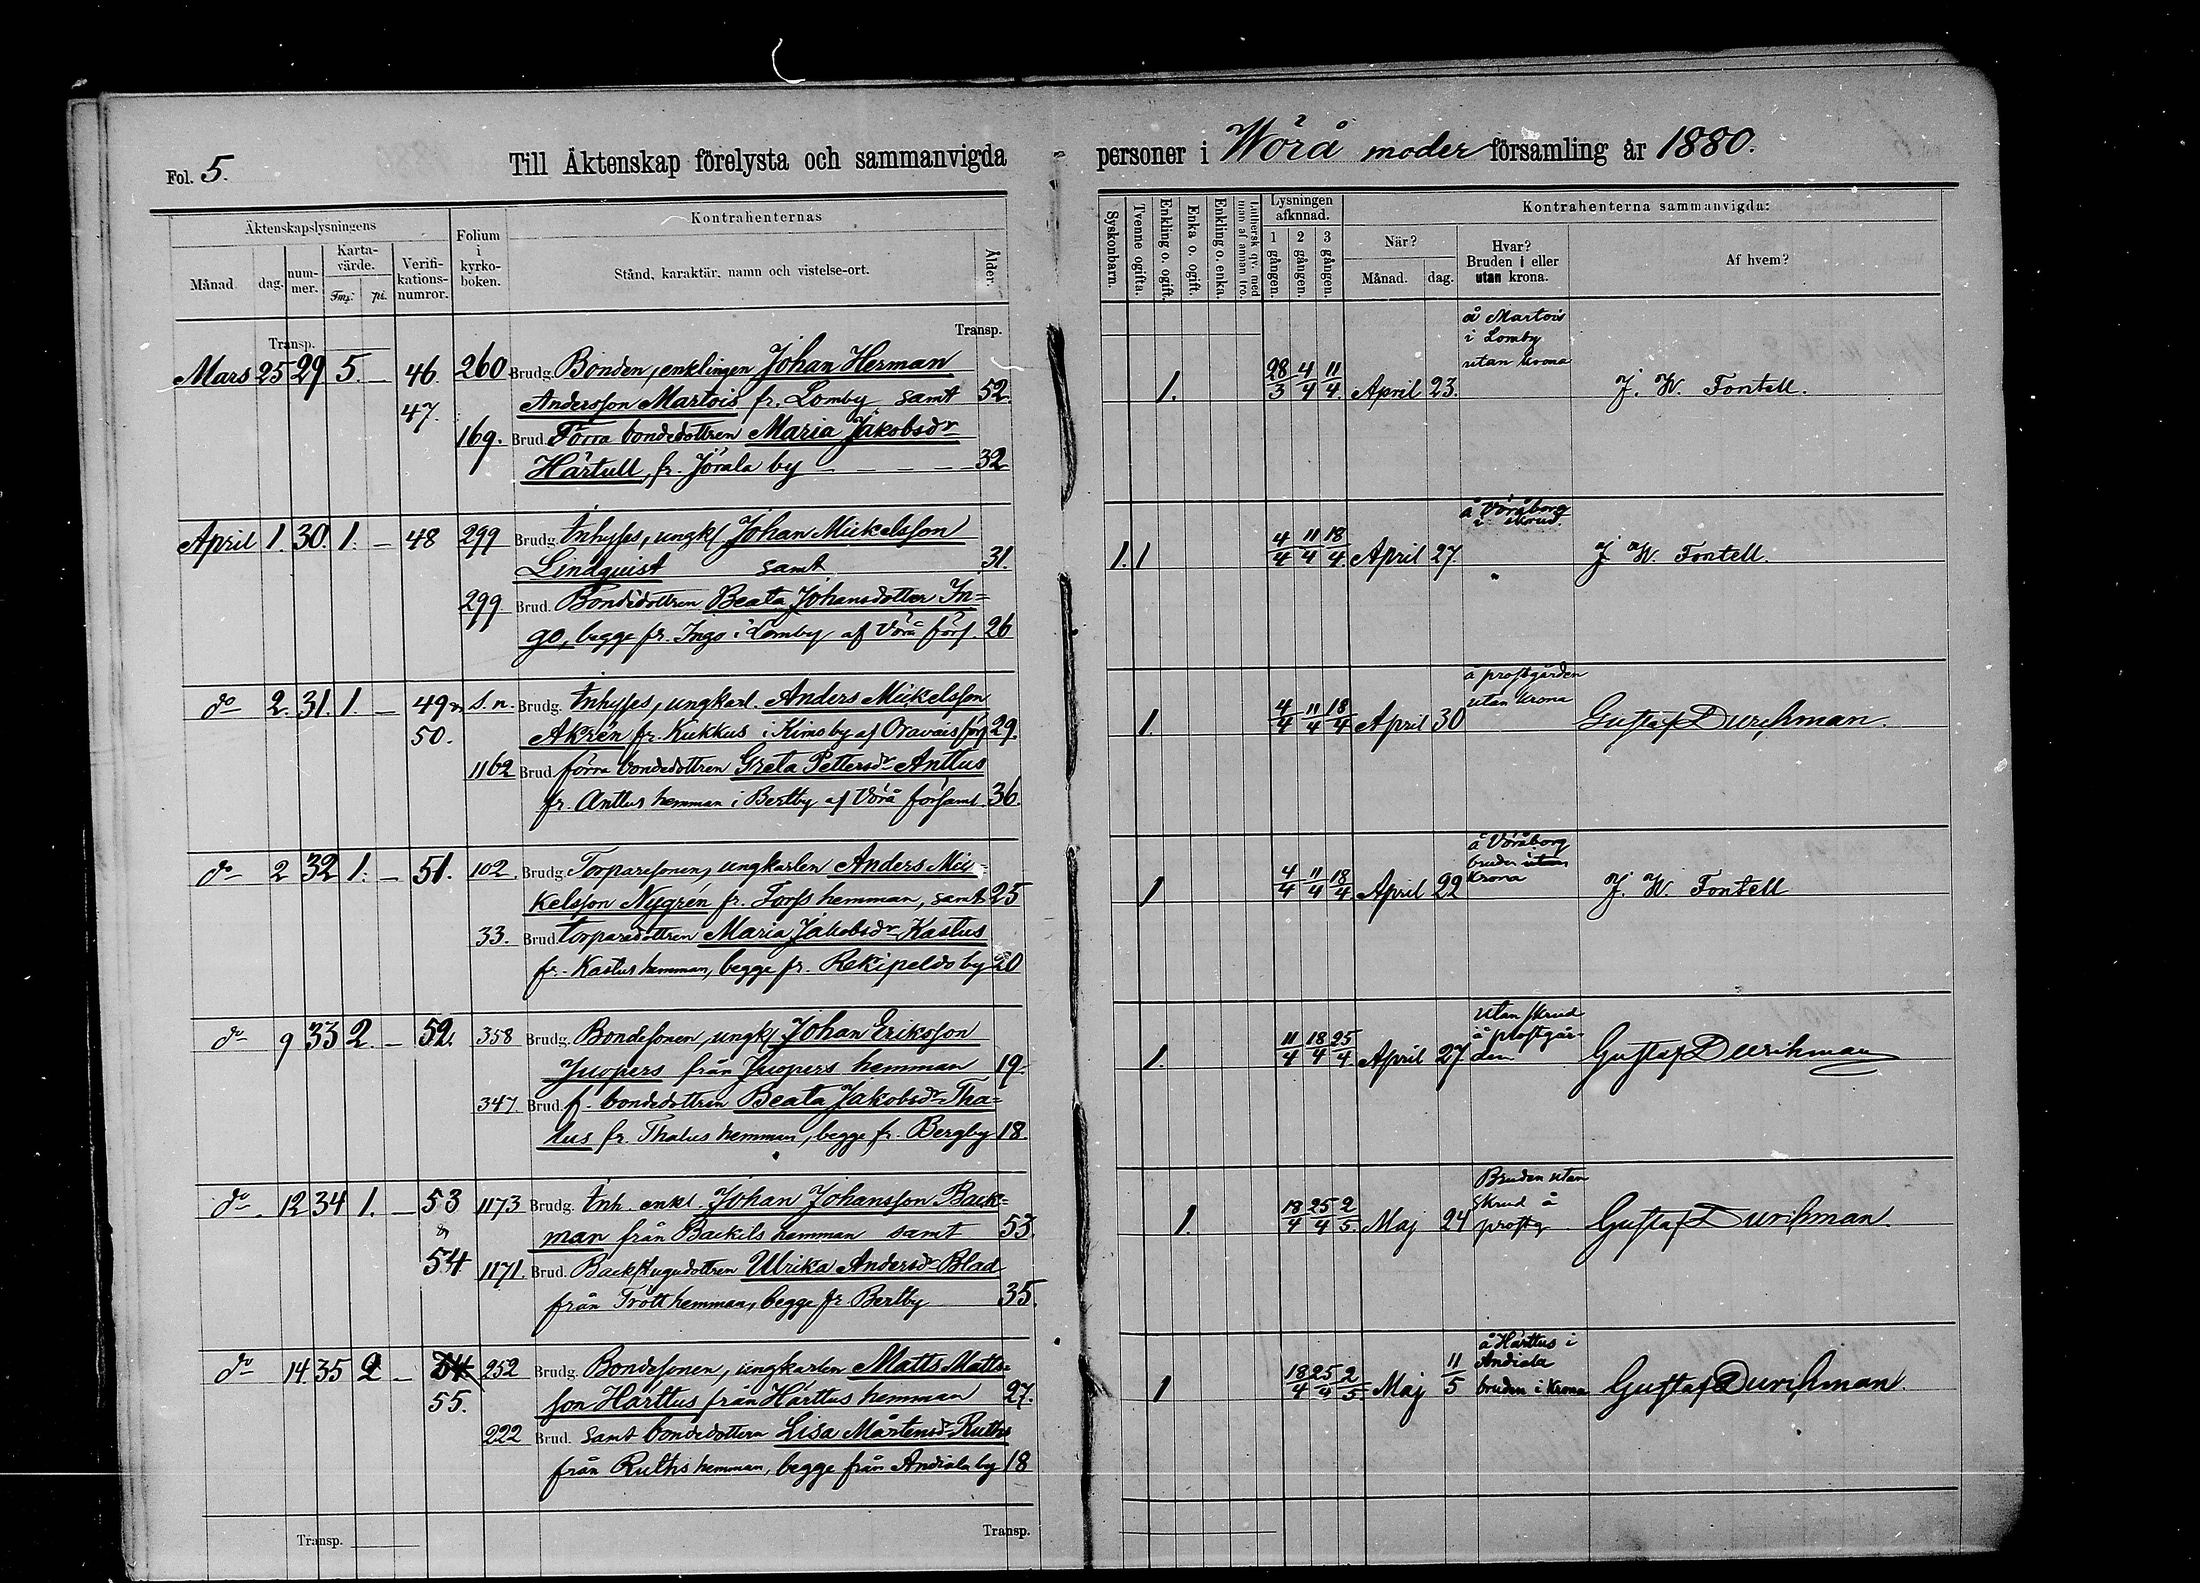 Fol. 5. Till Äktenskap förelysta och sammanvigda personer i Wörå moder församling år 1880.
Äktenskapslysningens
Månad. dag. nummer. Kartavärde. Fmk: pi. Verifikationsnumror.
Folium i kyrkoboken.
Kontrahenternas
Stånd, karaktär, namn och vistelse-ort. Ålder.
Syskonbarn. Tvenne ogifta. Enkling o. ogift. Enka o. ogift. Enkling o. enka. Luthersk qv. med man af annan tro.
Lysningen afkunnad. 1 gången. 2 gången. 3 gången.
Kontrahenterna sammanvigda:
När? Månad. dag. Hvar? Bruden i eller utan krona. Af hvem?
Transp. Transp.
å Martois
i Lomby
utan krona
Mars 25 29 5. — 46. 260 Brudg. Bonden, enklingen Johan Herman
47. Andersson Martois fr. Lomby samt 52. 1. 28/3 4/4 11/4. April 23. J. W. Fontell.
169. Brud. Förra bondedottren Maria Jakobsdr
Härtull, fr. Jörala by — — — — 32
å Vöråborg
i skrud.
April 1. 30. 1. — 48 299 Brudg. Inhyses, ungk. Johan Mickelsson
Lindquist samt 31. 1. 1 4/4 11/4 18/4. April 27. J W. Fontell.
299 Brud. Bondedottren Beata Johansdotter In=
go, begge fr. Ingo i Lomby af Vörå förs. 26
å prostgården
utan krona
do 2. 31. 1. — 49 s. n. Brudg. Inhyses, ungkarl. Anders Mickelsson
50. Akrén fr. Kukkus i Kimo by af Oravais förs 29. 1. 4/4 11/4 18/4 April 30 Gustaf Durchman.
1162 Brud. förra bondedottren Greta Pettersdr Anttus
fr. Anttus hemman i Bertby af Vörå församl. 36.
å Vöråborg
bruden utan
krona
do 2 32 1. — 51. 102. Brudg. Torparesonen, ungkarlen Anders Mic-
kelsson Nygrén fr. Torfs hemman, samt 25 1 4/4 11/4 18/4. April 22 J. W. Fontell
33. Brud. torparedottren Maria Jakobsdr Kastus
fr. Kastus hemman, begge fr. Rekipeldo by 20
utan skrud
å prostgår-
den
do 9 33 2. — 52. 358 Brudg. Bondesonen, ungk. Johan Eriksson
Juopers från Juopers hemman 19. 1. 11/4 18/4 25/4. April 27. Gustaf Durchman
347 Brud. f. bondedottren Beata Jakobsdr Tha=
lus fr. Thalus hemman, begge fr. Bergby 18.
Bruden utan
skrud å
prostg
do 12 34 1. — 53 1173 Brudg. Inh. enkl. Johan Johansson Back=
& man från Backils hemman samt 53. 1. 18/4 25/4 2/5 Maj 24 Gustaf Durchman.
54 1171. Brud. Backstugudottren Ulrika Andersdr Blad
från Trott hemman, begge fr Bertby 35.
å Härttus i
Andiala
bruden i krona
do 14. 35 2 — 54 252 Brudg. Bondesonen, ungkarlen Matts Matts=
55. son Härttus från Härttus hemman 27. 1 18/4 25/4 2/5. Maj 11/5 Gustaf Durchman.
222 Brud. samt bondedottern Lisa Mårtensdr Ruths
från Ruths hemman, begge från Andiala by 18
Transp. Transp.